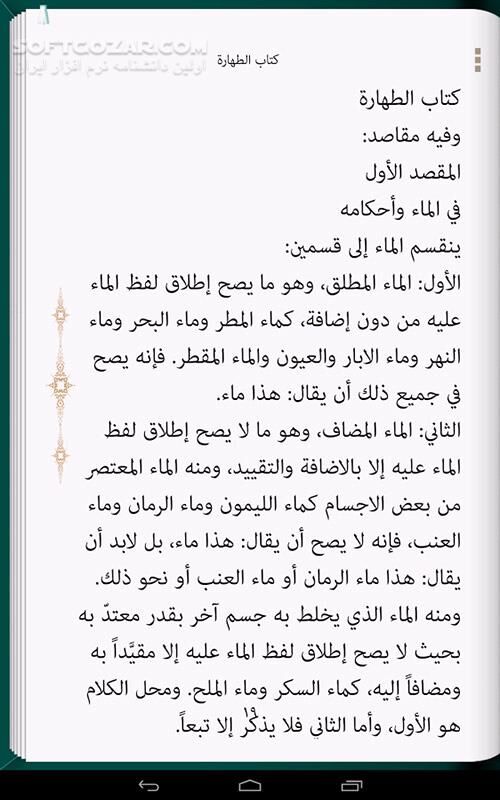 SOFTGOZAR.COM
اولین دانشنامه نرم افزار ایران
كتاب الطهارة
كتاب الطهارة
وفيه مقاصد:
المقصد الأول
في الماء وأحكامه
ينقسم الماء إلى قسمين:
الأول: الماء المطلق، وهو ما يصح إطلاق لفظ الماء
عليه من دون إضافة، كماء المطر وماء البحر وماء
النهر وماء الابار والعيون والماء المقطر. فإنه يصح
في جميع ذلك أن يقال: هذا ماء.
الثاني: الماء المضاف، وهو ما لا يصح إطلاق لفظ
الماء عليه إلا بالاضافة والتقييد، ومنه الماء المعتصر
من بعض الاجسام كماء الليمون وماء الرمان وماء
العنب، فإنه لا يصح أن يقال: هذا ماء، بل لابد أن
يقال: هذا ماء الرمان أو ماء العنب أو نحو ذلك.
ومنه الماء الذي يخلط به جسم آخر بقدر معتدّ به
بحيث لا يصح إطلاق لفظ الماء عليه إلا مقيَّداً به
ومضافاً إليه، كماء السكر وماء الملح. ومحل الكلام
هو الأول، وأما الثاني فلا يذكر إلا تبعاً.
١٩